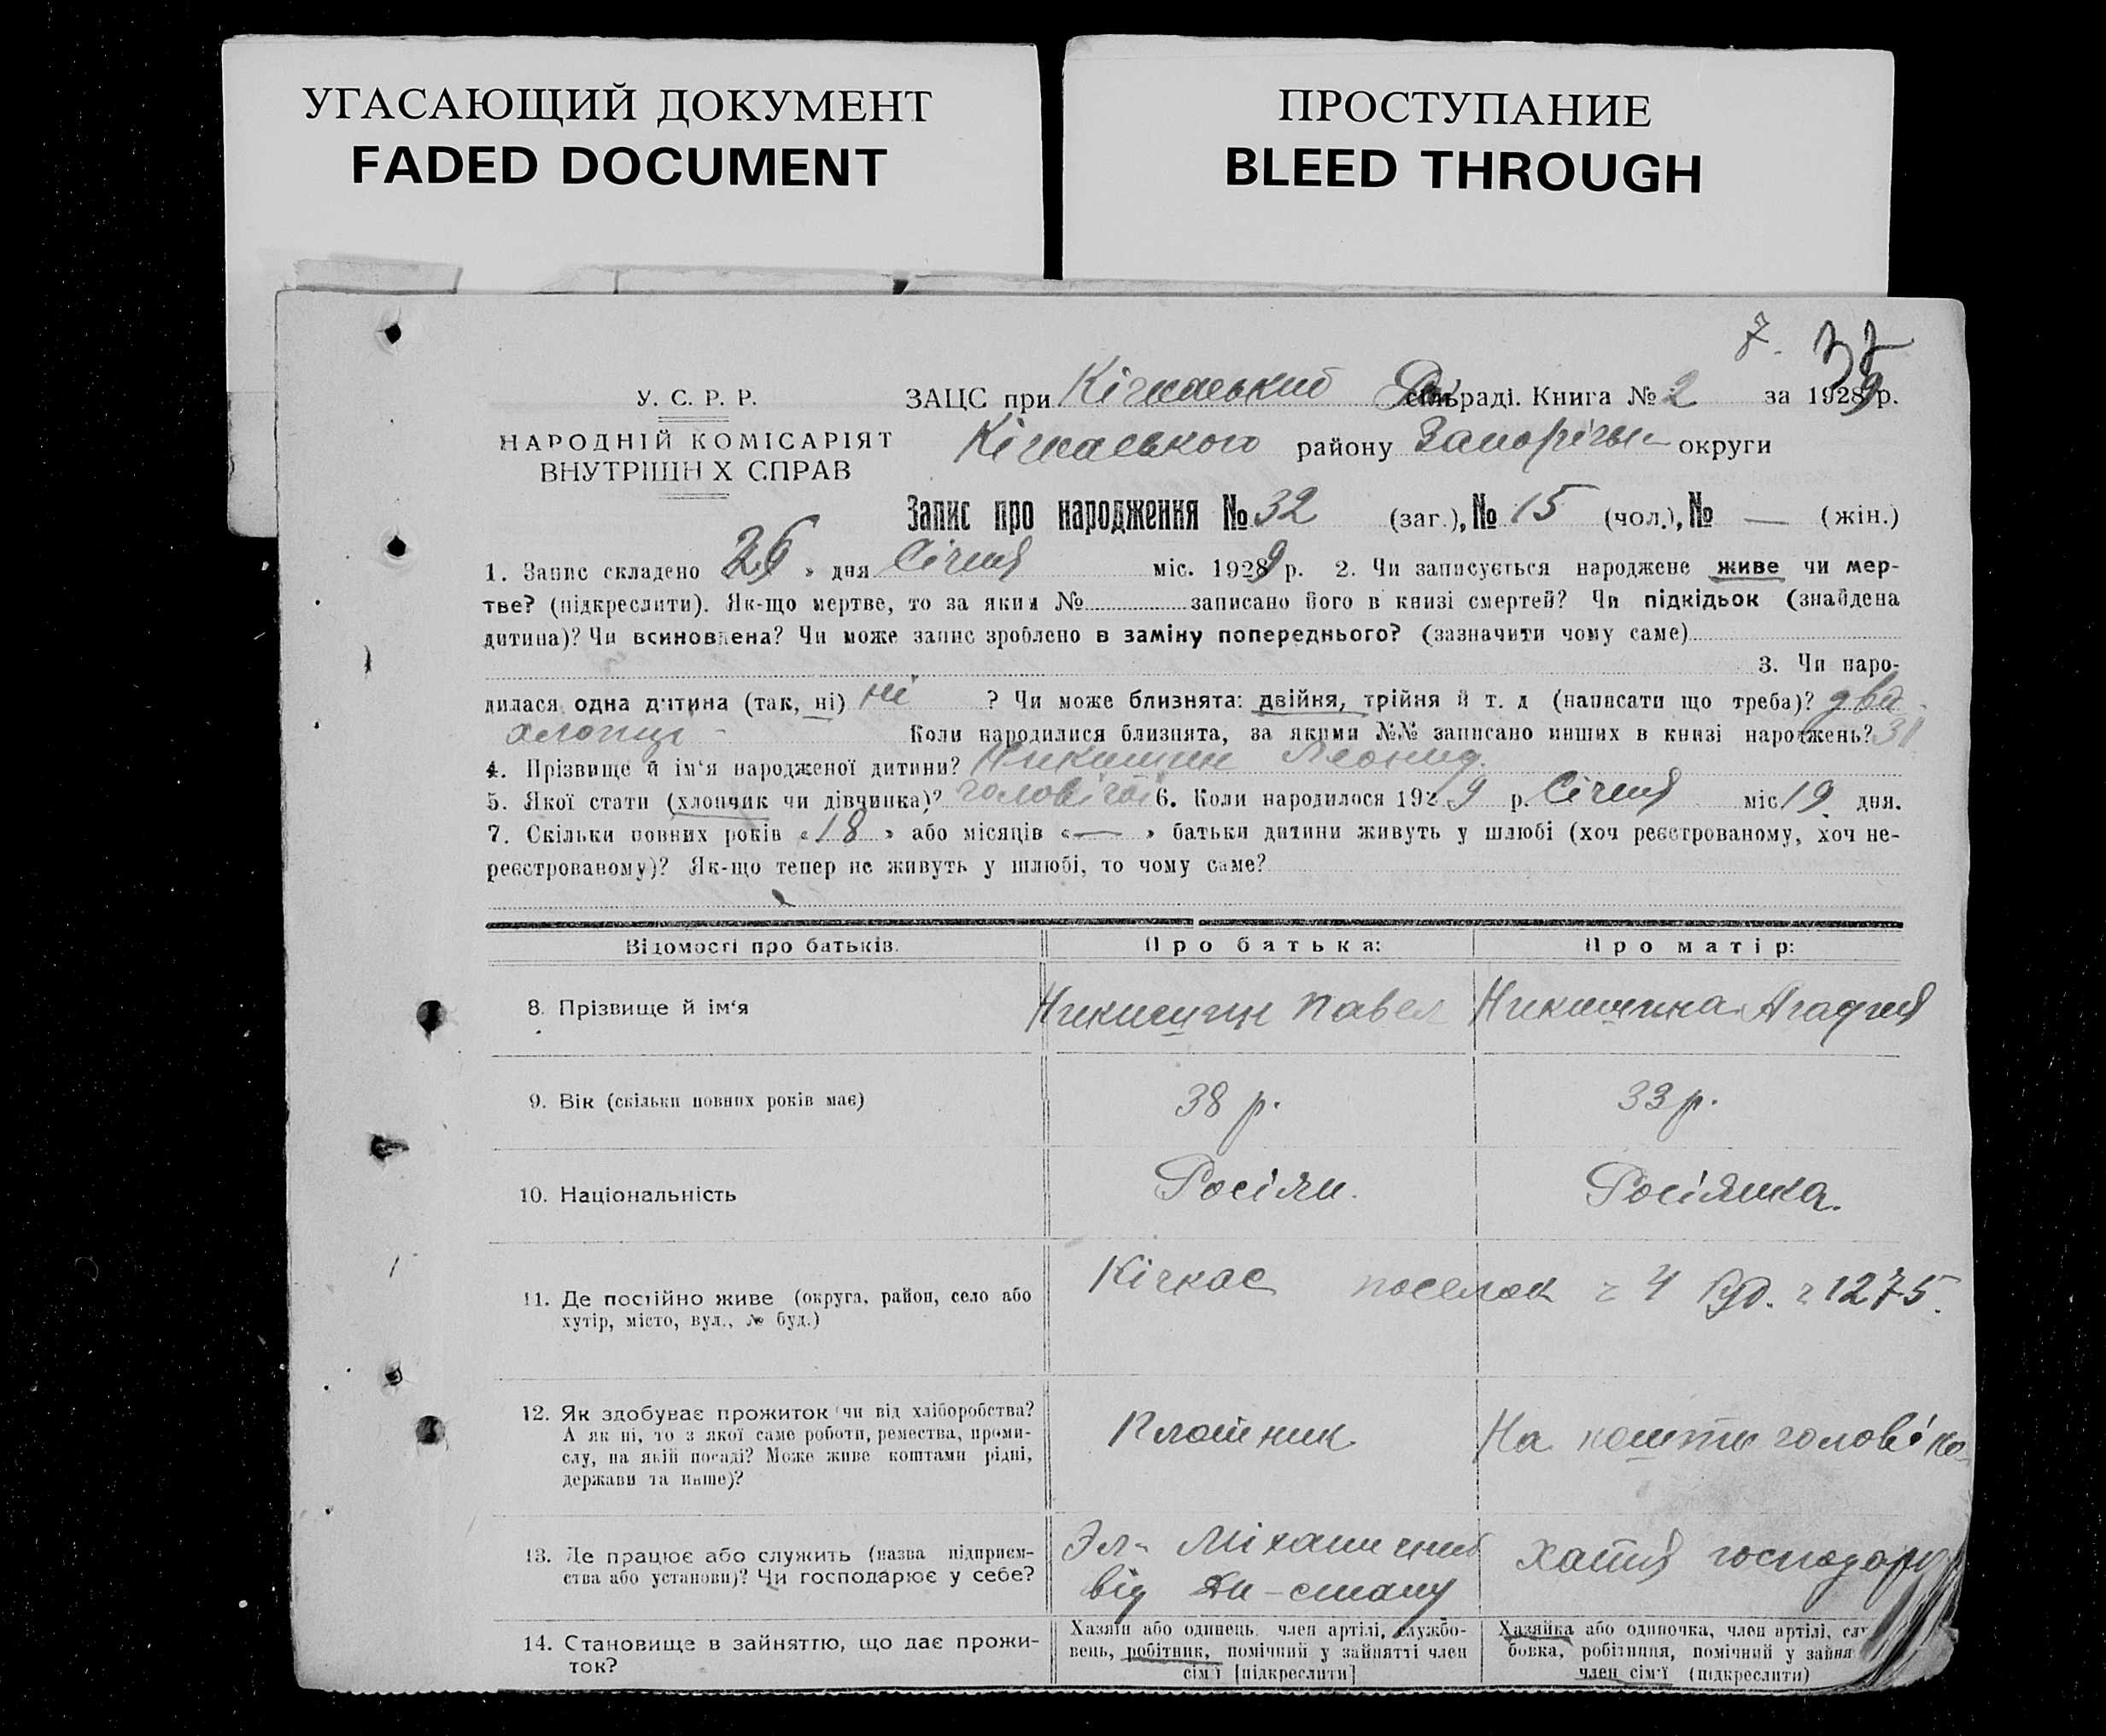 УГАСАЮЩИЙ ДОКУМЕНТ
FADED DOCUMENT
ПРОСТУПАНИЕ
BLEED THROUGH
7. 37
У. С. Р. Р.
НАРОДНІЙ КОМІСАРІЯТ
ВНУТРІШН Х СПРАВ
ЗАЦС при Кічкаський раді. Книга № 2 за 1929 р.
Кічкаського району Запорізьк округи
Запис про народження № 32 (заг.), № 15 (чол.), № — (жін.)
1. Запис складено 26 » дня Січня міс. 1929 р. 2. Чи записується народжене живе чи мер-
тве? (підкреслити). Як-що мертве, то за яким № записано його в книзі смертей? Чи підкідьок (знайдена
дитина)? Чи всиновлена? Чи може запис зроблено в заміну попереднього? (зазначити чому саме)
3. Чи наро-
дилася одна дитина (так, ні) ні ? Чи може близнята: двійня, трійня й т. д (написати що треба)? два
хлопці - Коли народилися близнята, за якими №№ записано инших в книзі народжень? 31
4. Прізвище й ім'я народженої дитини? Никишин Леонид.
5. Якої стати (хлопчик чи дівчинка)? чоловічої 6. Коли народилося 1929 р. Січня міс 19 дня.
7. Скільки повних років «18» або місяців «—» батьки дитини живуть у шлюбі (хоч реєстрованому, хоч не-
реєстрованому)? Як-що тепер не живуть у шлюбі, то чому саме?
Відомості про батьків.
Про батька:
Про матір:
8. Прізвище й ім'я
Никишин Павел
Никишина Агафия
9. Вік (скільки повних років має)
38 р.
33 р.
10. Національність
Росіян.
Росіянка.
11. Де постійно живе (округа, район, село або
хутір, місто, вул., № буд.)
Кічкас поселок ч 4 буд. ч 1275.
12. Як здобуває прожиток чи від хліборобства?
А як ні, то з якої саме роботи, ремества, проми-
слу, на якій посаді? Може живе коштами рідні,
держави та инше)?
Плотник
На кошти чоловіка
13. Де працює або служить (назва підприєм-
ства або установи)? Чи господарює у себе?
Эл- Міханичний
від Дн-стану
Хатня господар
14. Становище в зайняттю, що дає прожи-
ток?
Хазяїн або одинець, член артілі, службо-
вець, робітник, помічний у зайнятті член
сім'ї [підкреслити]
Хазяйка або одиночка, член артілі, слу
бовка, робітниця, помічний у зайня
член сім'ї (підкреслити)